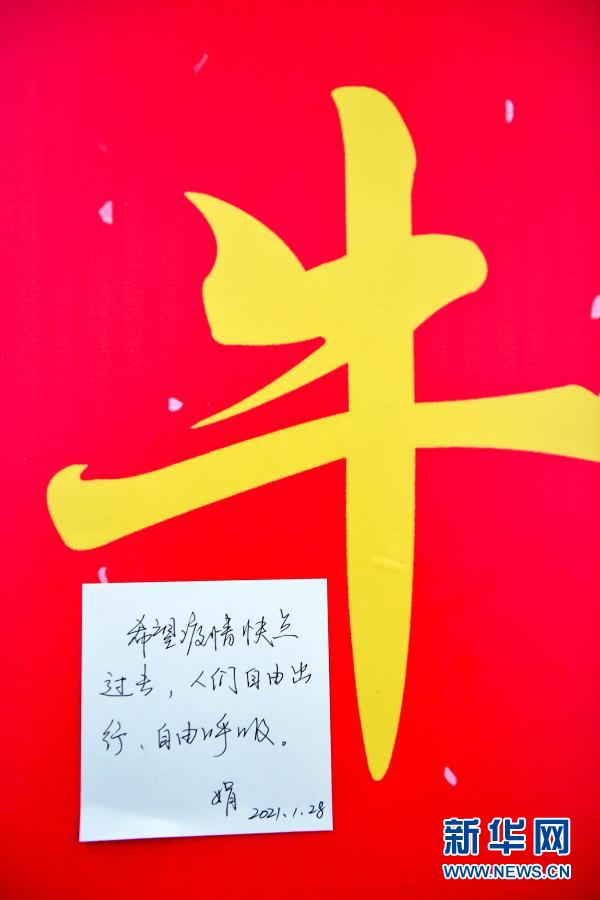 牛
希望疫情快点
过去，人们自由出
行、自由呼吸。
娟
2021.1.28
新华网
WWW.NEWS.CN